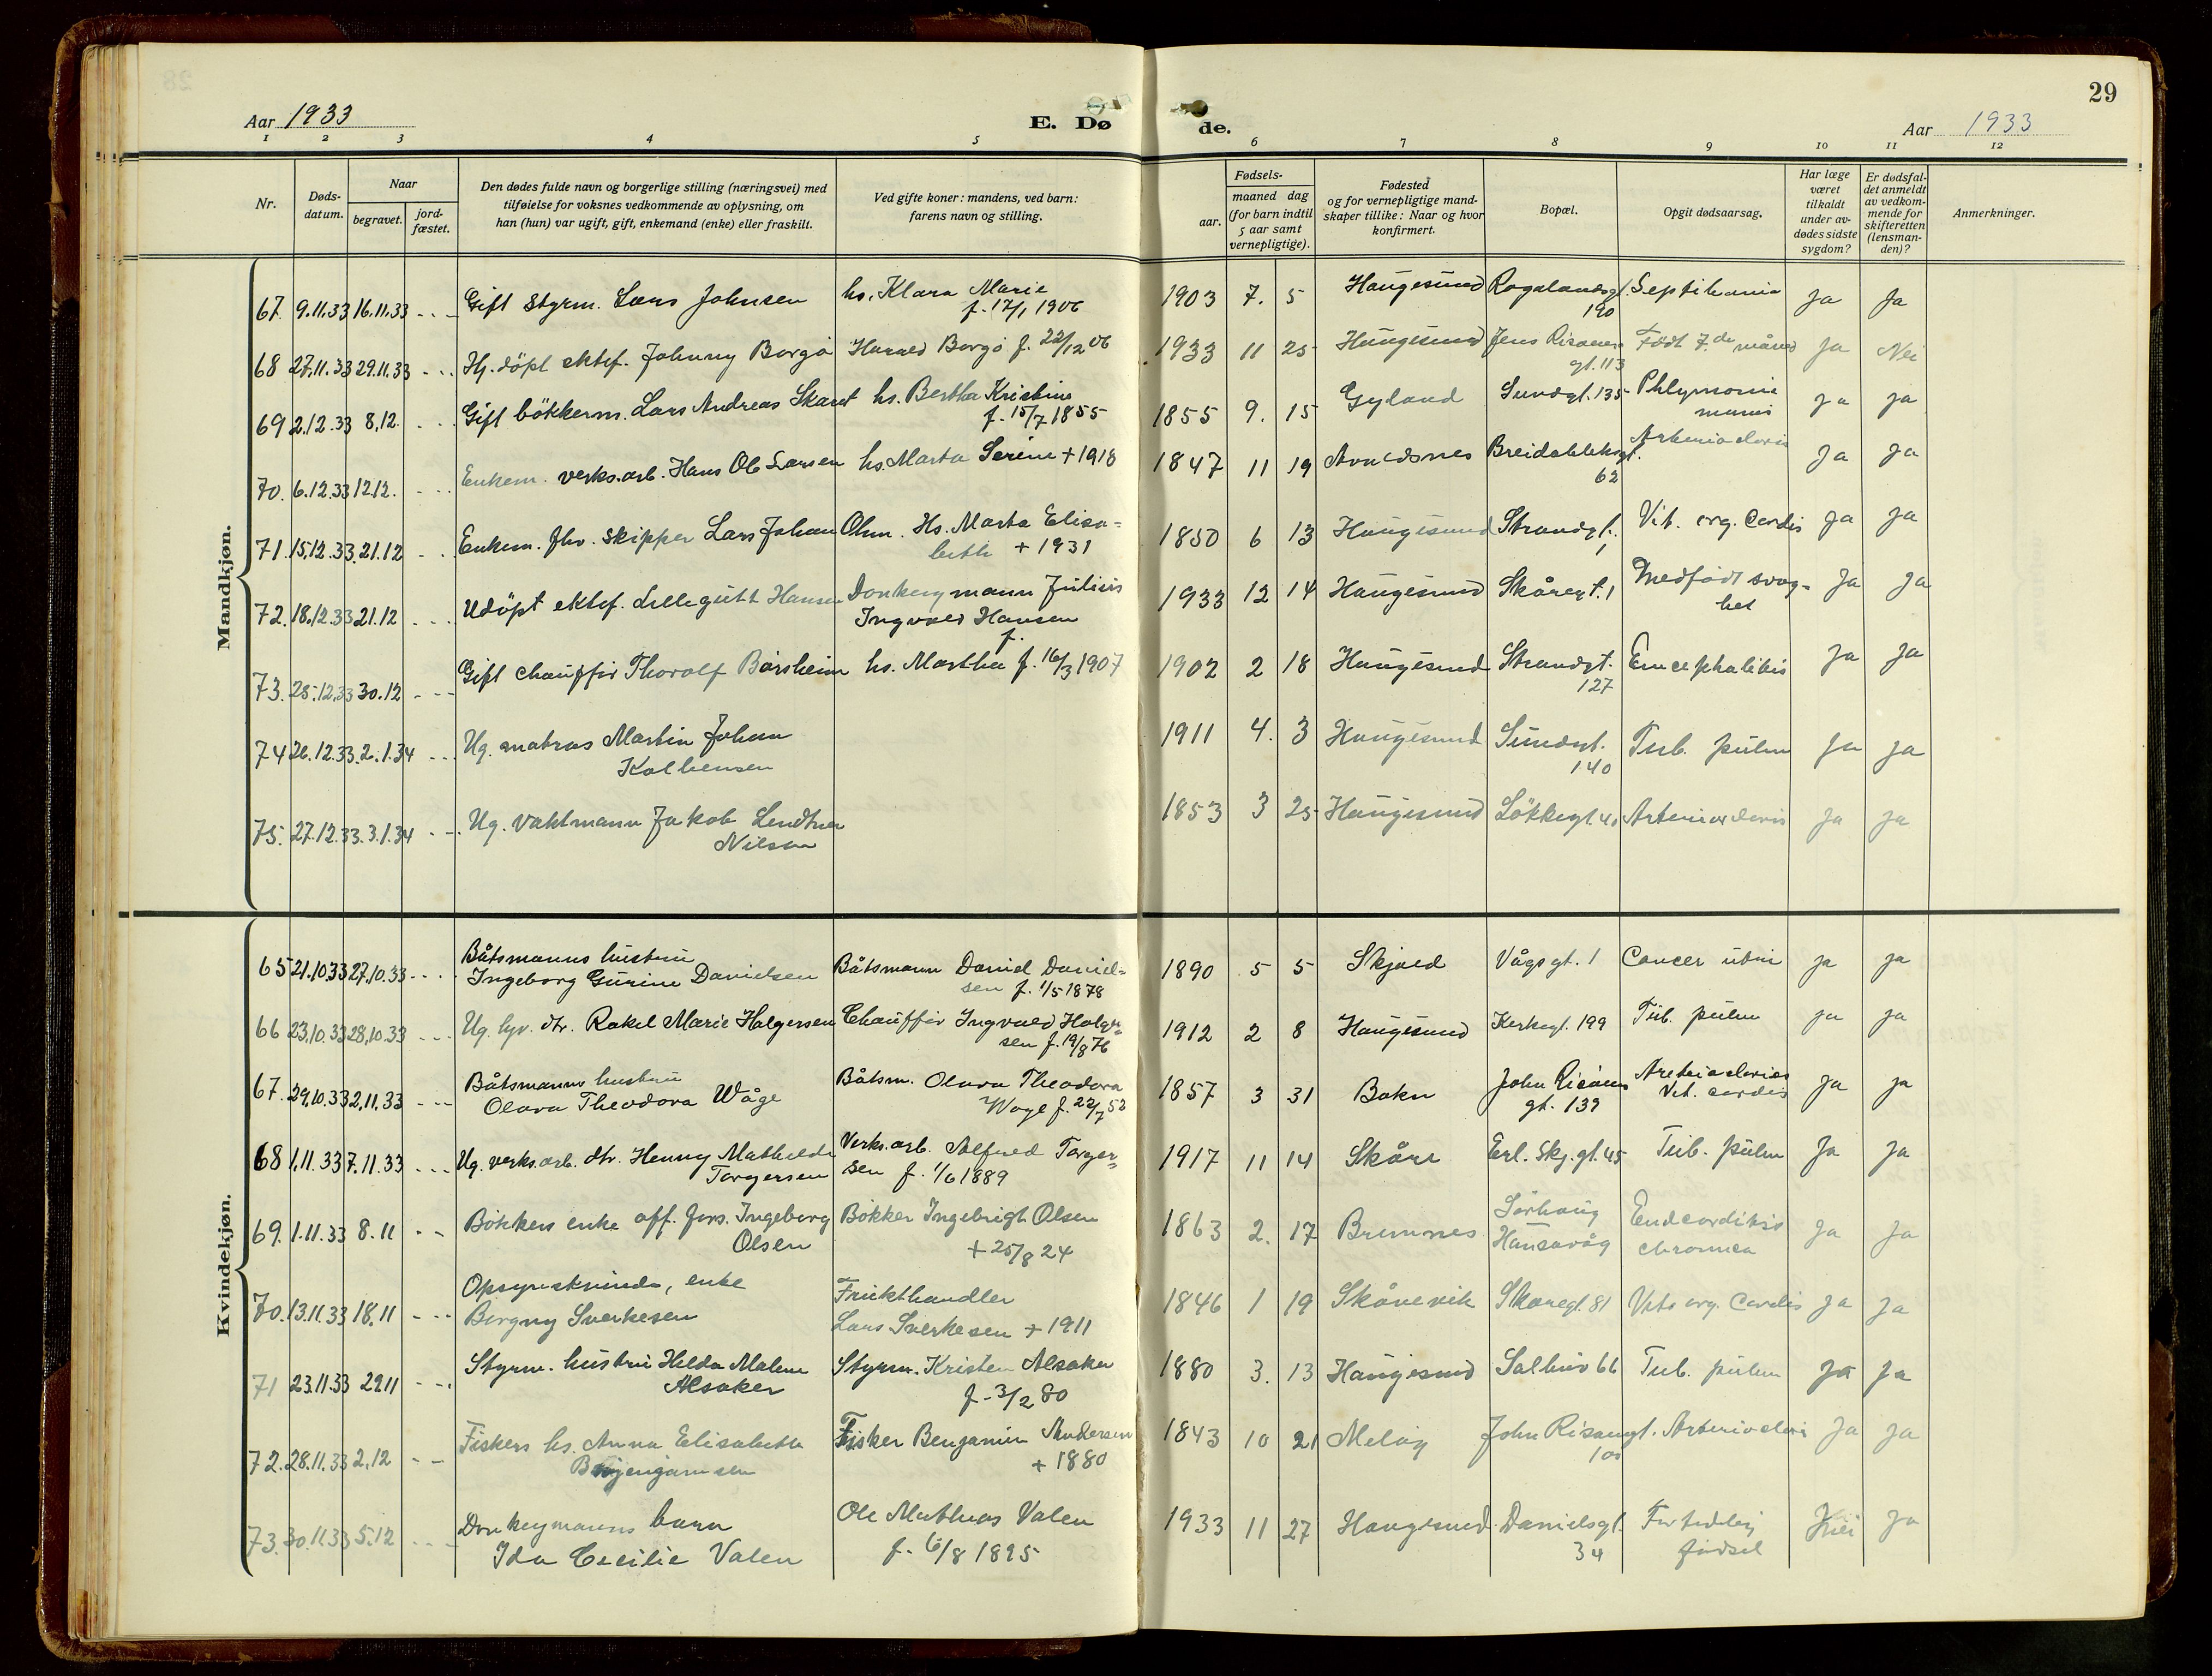 29
Aar 1933
E. Dø
de.
Aar 1933
1 2 3 4 5 6 7 8 9 10 11 12
Nr.
Døds-
datum.
Naar
begravet.
jord-
fæstet.
Den dødes fulde navn og borgerlige stilling (næringsvei) med
tilføielse for voksnes vedkommende av oplysning, om
han (hun) var ugift, gift, enkemand (enke) eller fraskilt.
Ved gifte koner: mandens, ved barn:
farens navn og stilling.
Fødsels-
aar.
maaned dag
(for barn indtil
5 aar samt
vernepligtige).
Fødested
og for vernepligtige mand-
skaper tillike: Naar og hvor
konfirmert.
Bopæl.
Opgit dødsaarsag.
Har læge
været
tilkaldt
under av-
dødes sidste
sygdom?
Er dødsfal-
det anmeldt
av vedkom-
mende for
skifteretten
(lensman-
den)?
Anmerkninger.
Mandkjøn.
67. 9.11.33 16.11.33 - - - Gift styrm. Lars Johnsen hs. Klara Marie 1903 7. 5 Haugesund Rogalandsgt. Septikemia Ja Ja
f. 17/1 1906 190
68 27.11.33 29.11.33 - - - Hj. döpt ektef. Johnny Borgö Harald Borgö f. 22/12 06 1933 11 25 Haugesund Jens Risøens Födt 7.de måned Ja Nei
gt. 113
69 2.12.33 8.12. - - - Gift bökkerm. Lars Andreas Skaret hs. Bertha Kristine 1855 9. 15 Gyland Sundgt. 135 Ja Ja
f. 15/7 1855
70. 6.12.33 12.12. - - - Enkem. verks.arb. Hans Ols Larsen hs. Marta Serine + 1918 1847 11 19 Avaldsnes Breidablikgt. Ja Ja
62
71. 15.12.33. 21.12 - - Enkem. fhv. skipper Lars Johan Ohm. Hs. Marta Elisa= 1850 6 13 Haugesund Strandgt. Vit. org. Cordis Ja Ja
beth + 1931 1
72. 18.12.33 21.12 - - - Udöpt ektef. Lillegutt Hansen Donkeymann Julius 1933 12 14 Haugesund Skåregt. 1 Medfödt svag= Ja Ja
Ingvald Hansen het
f.
73. 25.12.33 30.12 - - - Gift chauffør Thorolf Børsheim hs. Martha f. 16/3 1907 1902 2 18 Haugesund Strandgt. Encephalitis Ja Ja
127
74 26.12.33. 2.1.34 - - - Ug. matros Martin Johan 1911 4. 3 Haugesund Sundgt. Tub. pulm Ja Ja
Kolbensen 140
75. 27.12.33. 3.1.34 - - Ug. vaktmann Jakob Lendtner 1853 3 25 Haugesund Lökkegt. 40 Ja Ja
Nilsen
Kvindekjøn.
65 21.10.33 27.10.33 - - - Båtsmanns hustru
Ingeborg Gurine Danielsen Båtsmann Daniel Daniel= 1890 5 5 Skjold Vågsgt. 1 Cancer uteri Ja Ja
sen f. 1/5 1878
66 23.10.33 28.10.33 - - - Ug. hjv. dtr. Rakel Marie Holgersen Chauffør Ingvald Holger= 1912 2 8 Haugesund Kirkegt. 199 Tub. pulm Ja Ja
sen f. 19/8 76
67. 29.10.33 2.11.33 - - - Båtsmanns hustru Båtsm. Olava Theodora 1857 3 31 Bokn John Risøens Ja Ja
Olava Theodora Wåge Wage f. 22/7 52 gt. 139 Vit. cordis
68 1.11.33 7.11.33 - - - Ug. verks.arb. dtr. Henny Mathilde Verks.arb. Alfred Torger= 1917 11 14 Skåre Erl. Skj. gt. 45 Tub. pulm Ja Ja
Torgersen sen f. 1/6 1889
69. 1.11.33 8.11 - - Bökkers enke off. fors. Ingeborg Bökker Ingebrigt Olsen 1863 2. 17 Bremnes Sörhaug Endcarditis Ja Ja
Olsen + 25/8 24 Hansavåg chronica
70. 13.11.33 18.11 - - - Opsynskvinde, enke Frukthandler 1846 1 19 Skånevik Skåregt. 81 Vit. org. Cordis Ja Ja
Borgny Sverkesen Lars Sverkesen + 1911
71 23.11.33 29.11 - - - Styrm. hustru Helda Malene Styrm. Kristen Alsaker 1880 3. 13 Haugesund Salhus 66 Tub. pulm Ja Ja
Alsaker f. 3/2 80
72. 28.11.33 2.12 - - Fiskers hs. Anna Elisabeth Fisker Benjamin Andersen 1843 10 21 Melöy John Risøensgt. Ja Ja
Benjaminsen + 1880 100
73. 30.11.33 5.12 - - - Donkeymanns barn Ole Mathias Valen 1933 11 27 Haugesund Danielsgt. For tidlig Ja
Ida Cecilie Valen f. 6/8 1895 34 födsel